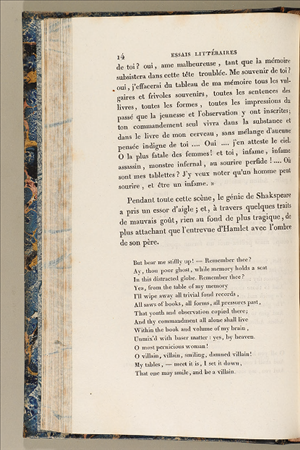 14 ESSAIS LITTÉRAIRES
de toi? oui, ame malheureuse, tant que la mémoire
subsistera dans cette tête troublée. Me souvenir de toi?
oui, j'effacerai du tableau de ma mémoire tous les vul-
gaires et frivoles souvenirs, toutes les sentences des
livres, toutes les formes, toutes les impressions du
passé que la jeunesse et l'observation y ont inscrites;
ton commandement seul vivra dans la substance et
dans le livre de mon cerveau, sans mélange d'aucune
pensée indigne de toi .... Oui .... j'en atteste le ciel.
O la plus fatale des femmes! et toi, infame, infame
assassin, monstre infernal, au sourire perfide!.... Où
sont mes tablettes? J'y veux noter qu'un homme peut
sourire, et être un infame. »
Pendant toute cette scène, le génie de Shakspeare
a pris un essor d'aigle; et, à travers quelques traits
de mauvais goût, rien au fond de plus tragique, de
plus attachant que l'entrevue d'Hamlet avec l'ombre
de son père.
But bear me stiffly up! — Remember thee?
Ay, thou poor ghost, while memory holds a seat
In this distracted globe. Remember thee?
Yes, from the table of my memory
I'll wipe away all trivial fond records,
All saws of books, all forms, all pressures past,
That youth and observation copied there;
And thy commandment all alone shall live
Within the book and volume of my brain,
Unmix'd with baser matter: yes, by heaven.
O most pernicious woman!
O villain, villain, smiling, damned villain!
My tables, — meet it is, I set it down,
That one may smile, and be a villain.